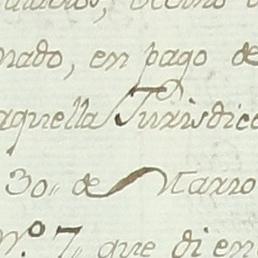 nado, en pago de
aquella Jurisdicc
30,, de Marzo
N.º 7,, que di en